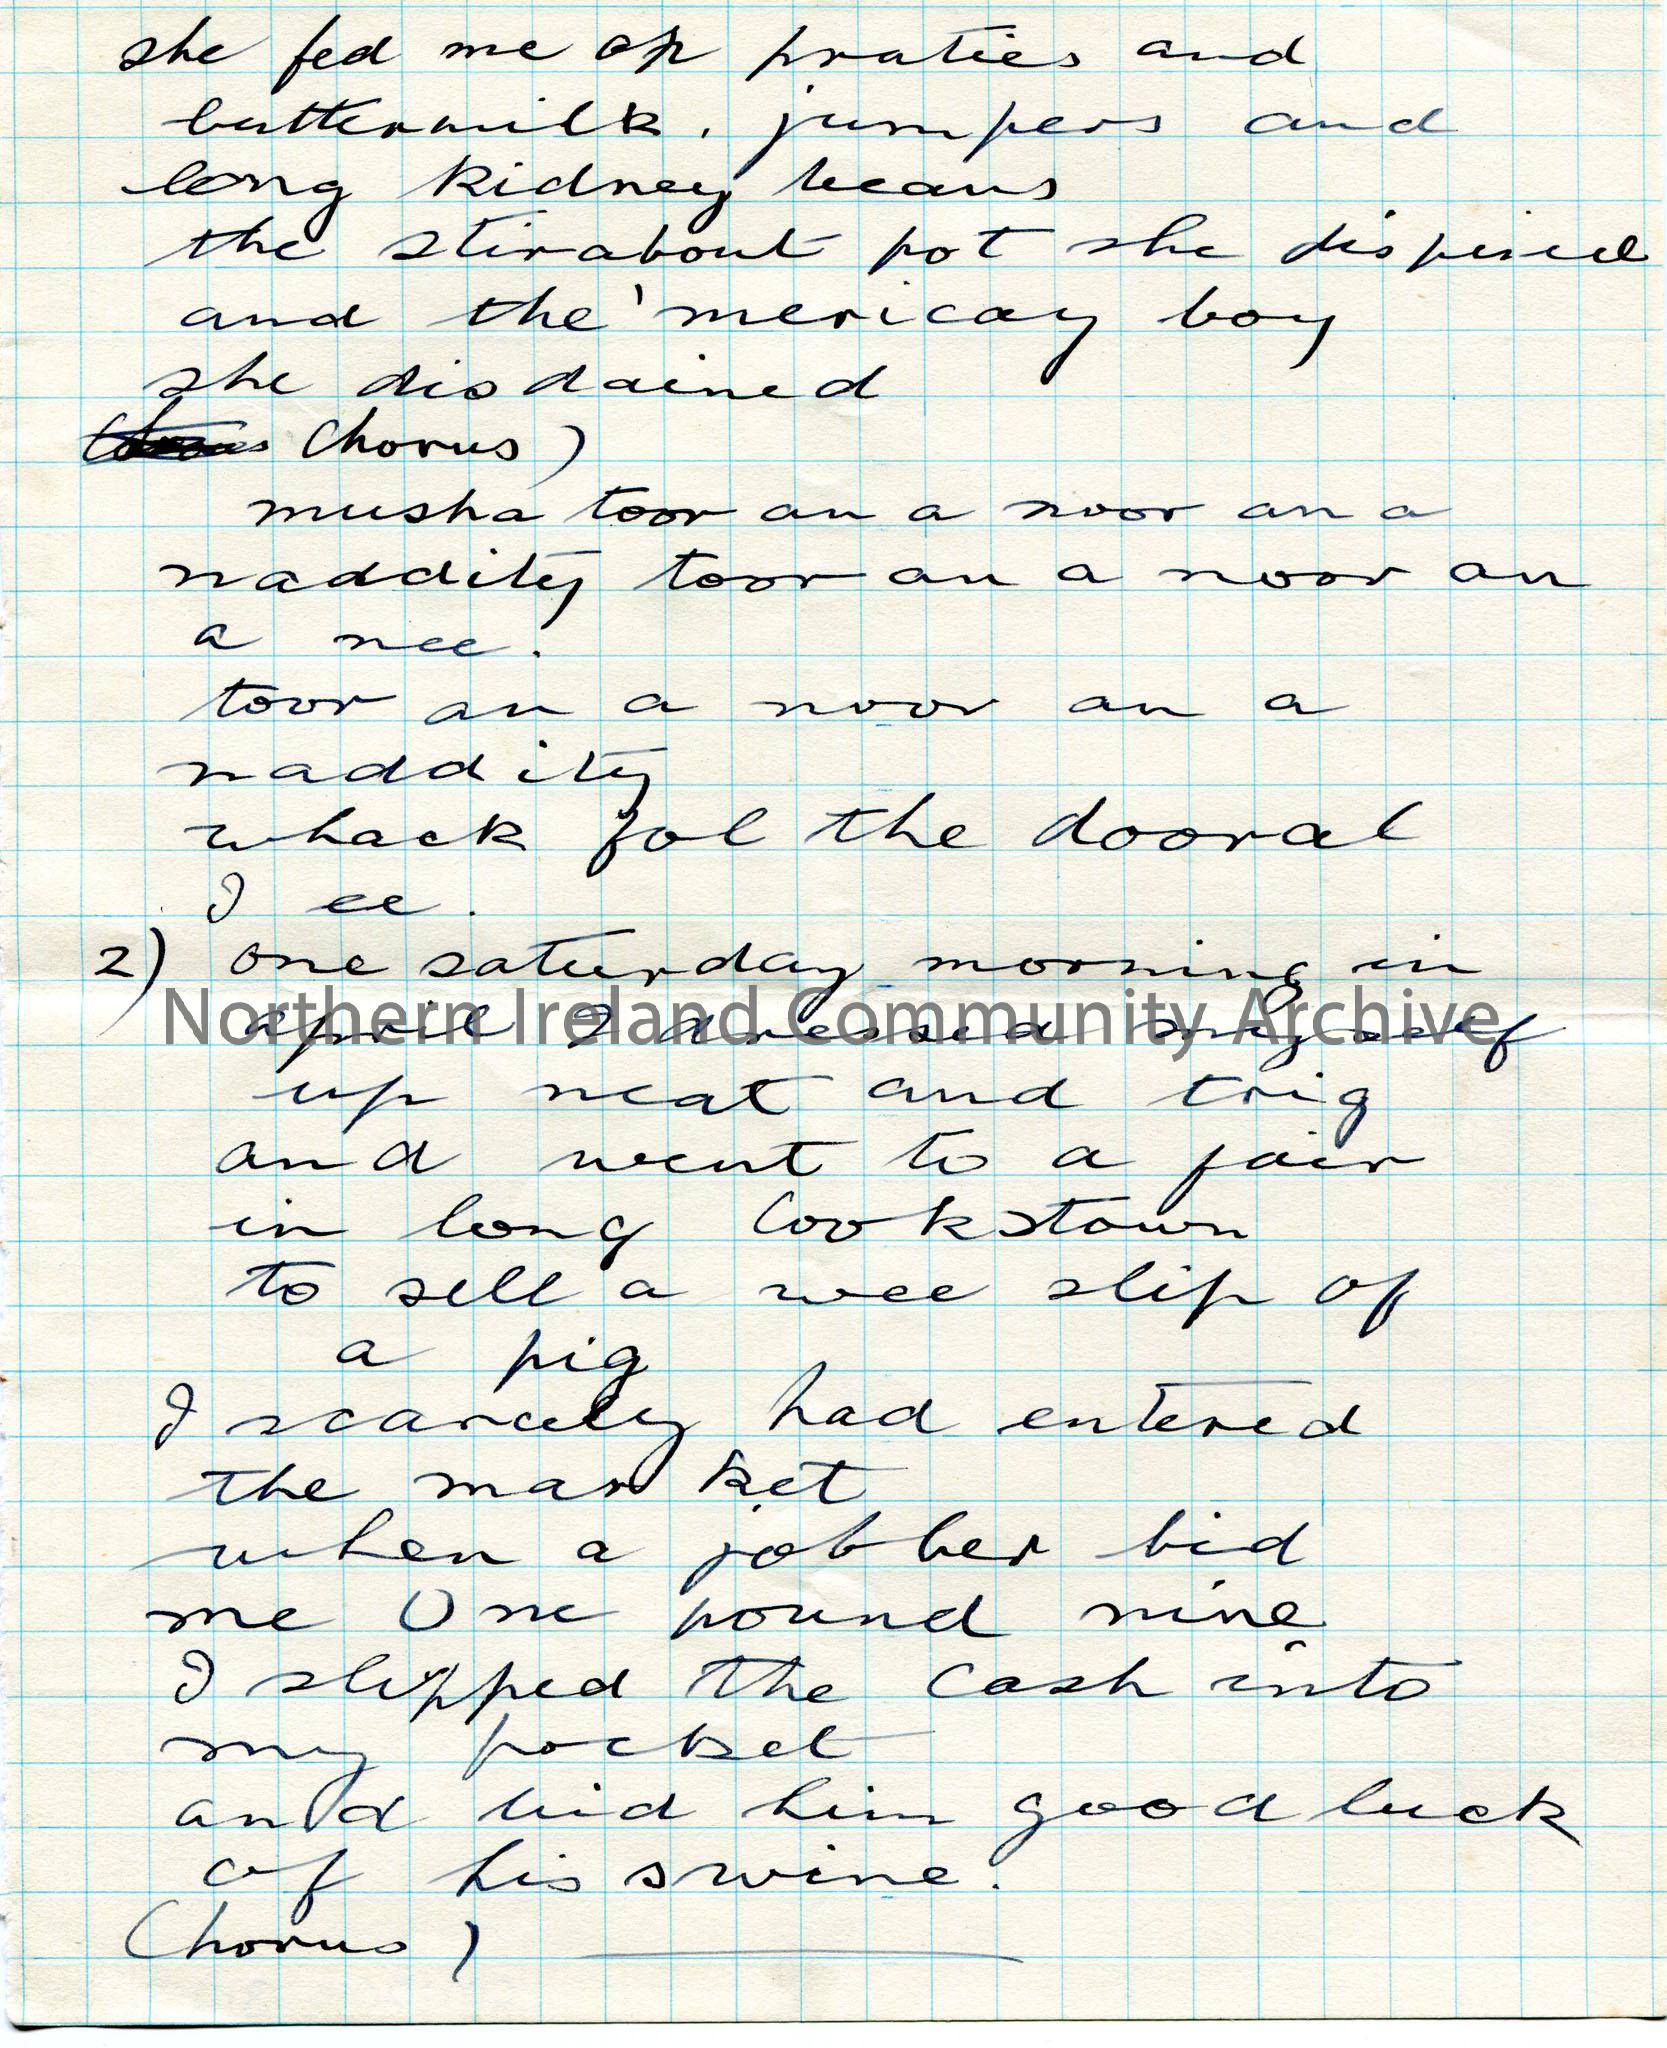 she fed me on praties and
buttermilk. jumpers and
long kidney beans
the stirabout pot she dispised
and the 'mericay boy
she disdained
Chorus)
musha toor an a noor an a
naddity toor an a noor an
a nee.
toor an a noor an a
naddity
whack fol the dooral
I ee.
2) one saturday morning in
Northern Ireland Community Archive
april I dressed my self
up neat and trig
and went to a fair
in long Cookstown
to sell a wee slip of
a pig
I scarcely had entered
the market
when a jobber bid
me One pound nine
I slipped the cash into
my pocket
and bid him good luck
of his swine.
Chorus)